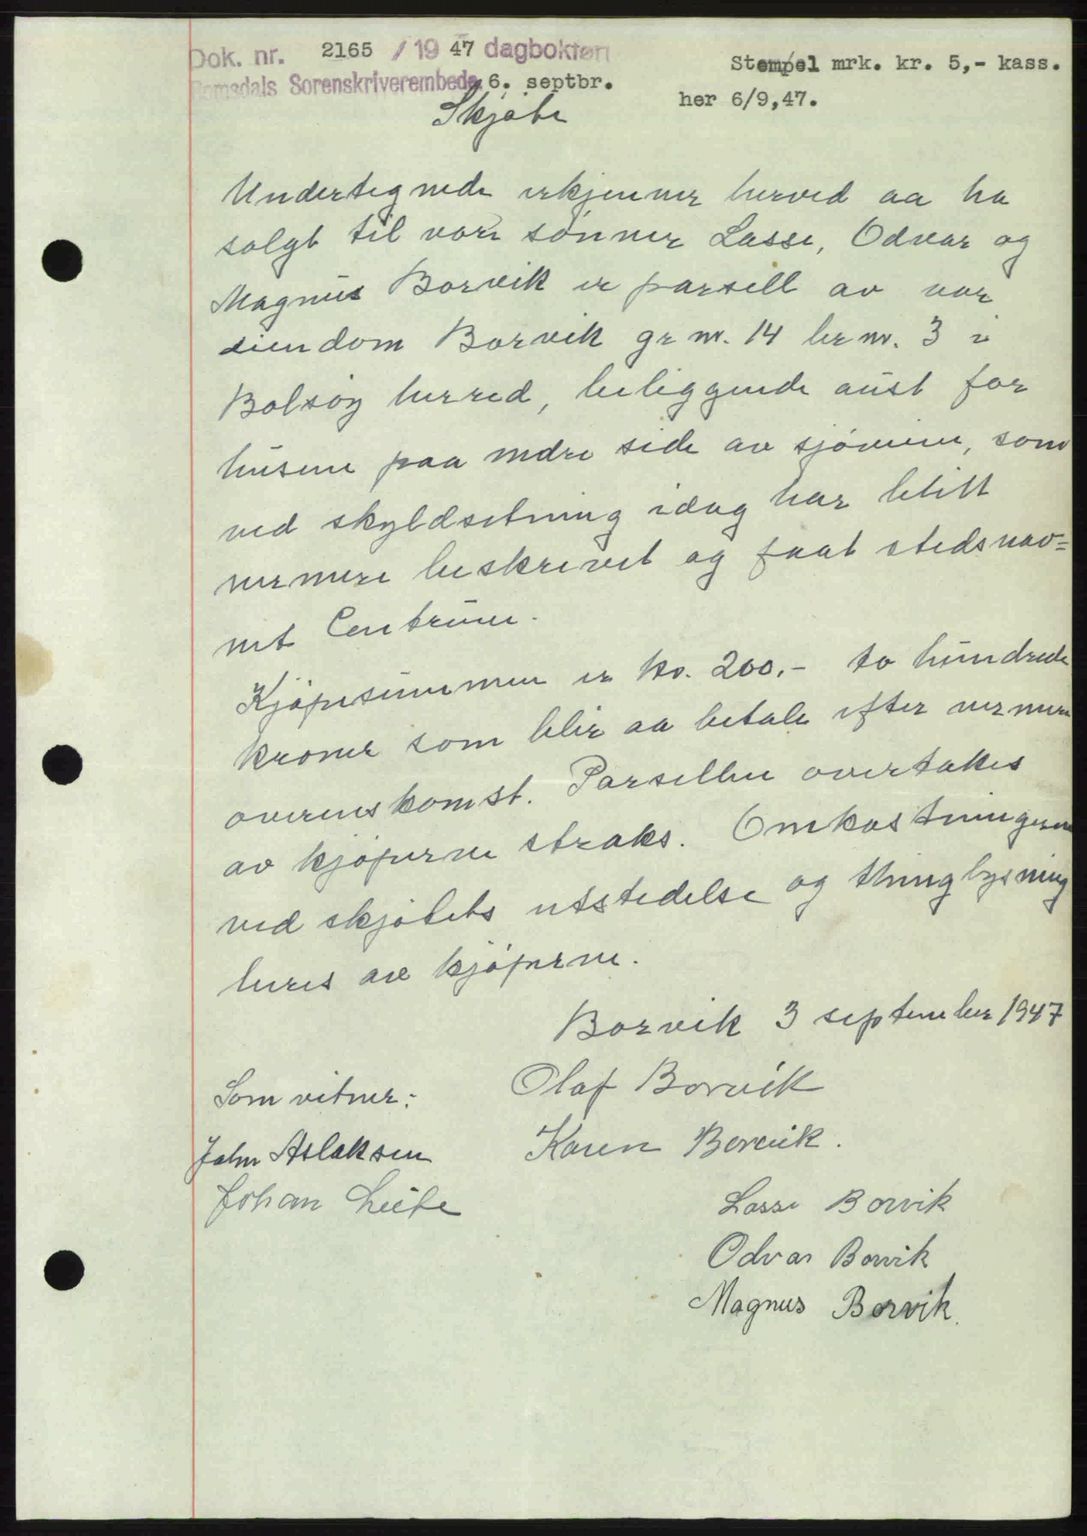 Dok. nr. 2165 / 19 47 dagbokført
Romsdals Sorenskriverembede 6. septbr.
Stempel mrk. kr. 5,- kass.
her 6/9,47.
Skjøte
Undertegnede erkjenner herved aa ha
solgt til vore sønner Lasse, Odvar og
Magnus Borvik er parsell av vor
eiendom Borvik gr nr. 14 br nr. 3 i
Bolsøy herred, beliggende aust for
husene paa nedre side av sjøveien, som
ved skyldsetning idag har blitt
nermere beskrevet og faat stedsnav=
net Centrum.
Kjøpesummen er kr. 200.- to hundrede
kroner som blir aa betale efter nermere
overenskomst. Parsellen overtakes
av kjøperne straks. Omkostningerne
ved skjøtets utstedelse og thinglysning
beres av kjøperne.
Borvik 3 september 1947
Som vitner:
Olaf Borvik
John Aslaksen
Karen Borvik.
Johan
Lasse Borvik
Odvar Borvik
Magnus Borvik.